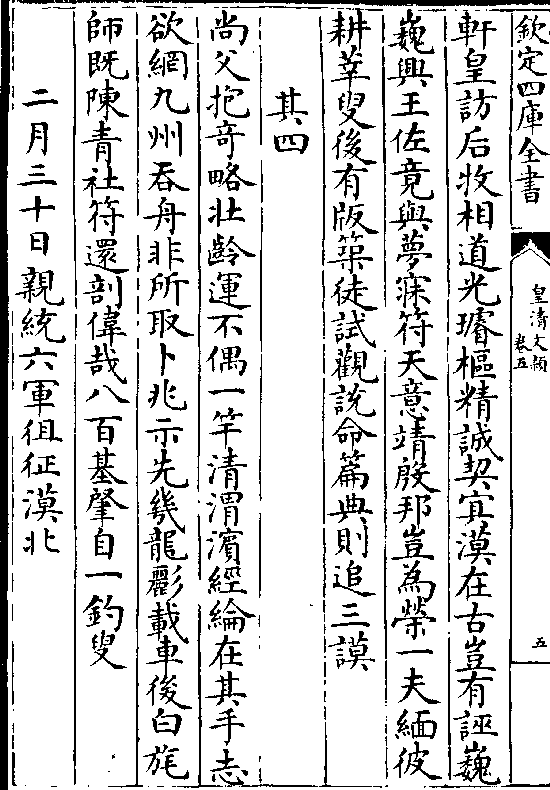 欽定四庫全書
皇清文頴
卷五
五
軒皇訪后牧相道光璿樞精誠契㝠漠在古豈有誣巍
巍興王佐竟與夢寐符天意靖殷邦豈為榮一夫緬彼
耕莘叟後有版築徒試觀說命篇典則追三謨
其四
尚父抱竒略壯齡運不偶一竿清渭濱經綸在其手志
欲網九州吞舟非所取卜兆示先幾龍彲載車後白旄
師既陳青社符還剖偉哉八百基肇自一釣叟
二月三十日親統六軍徂征漠北